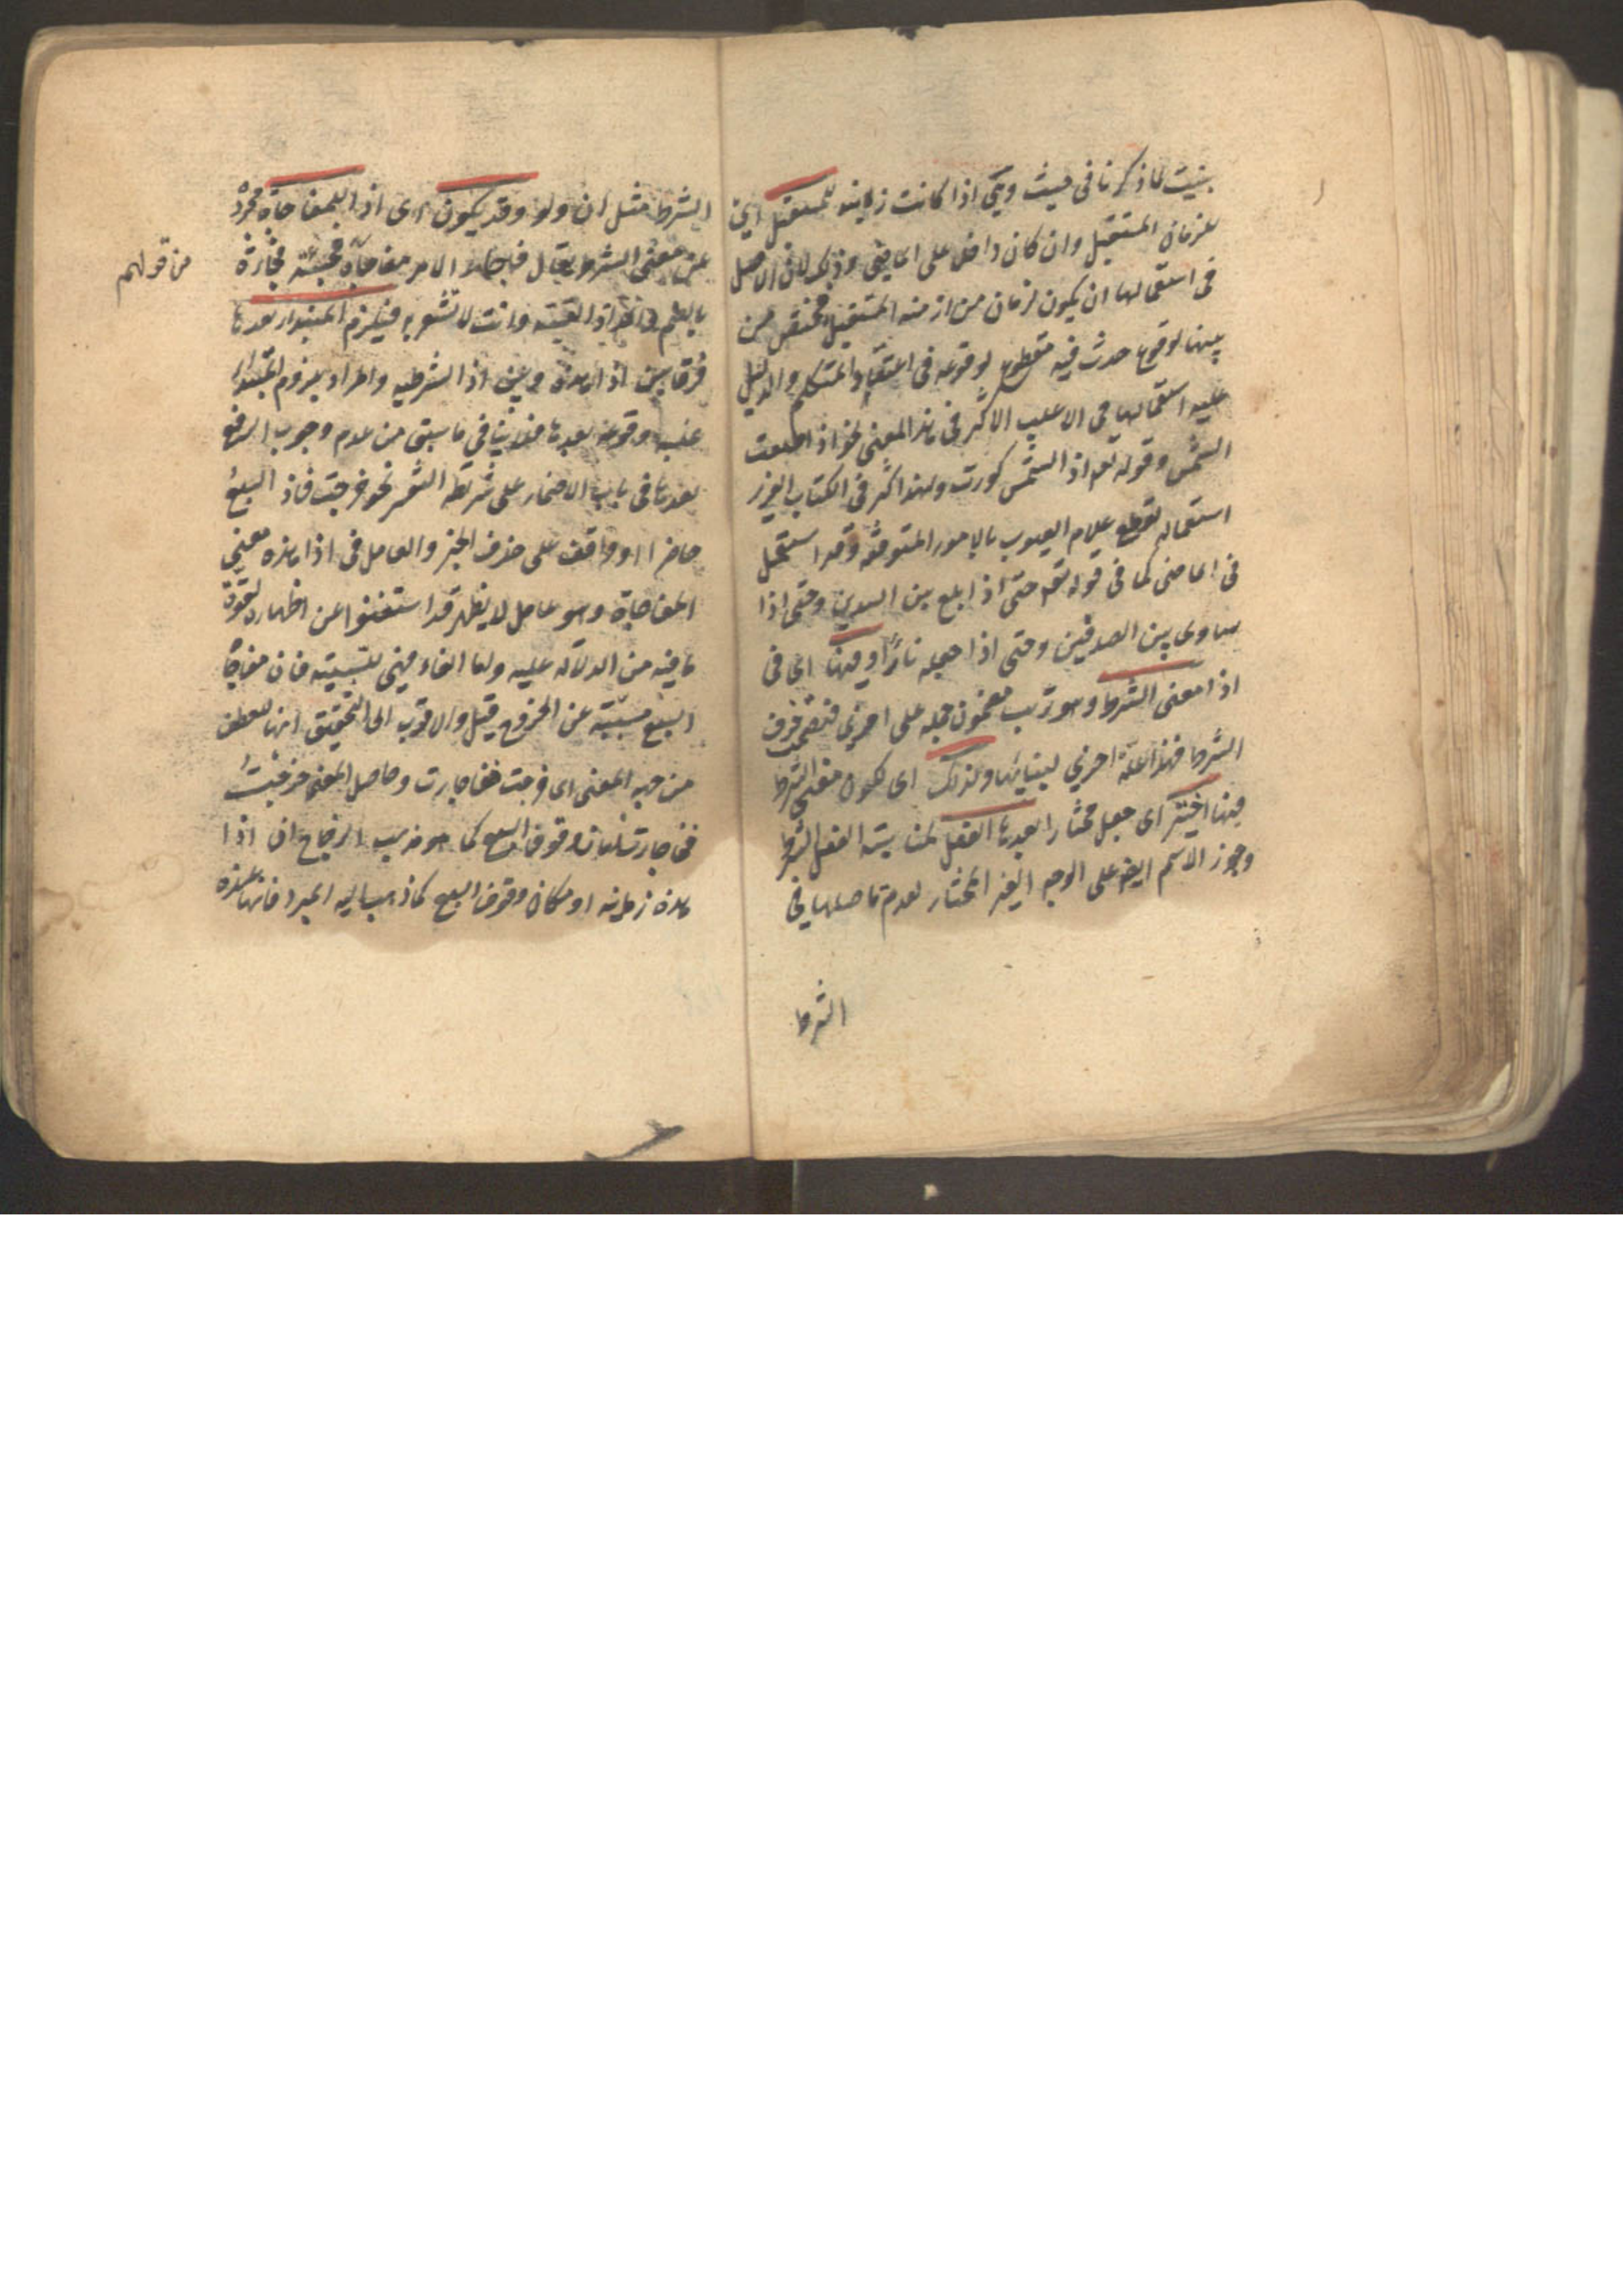 بنيت لما ذكرنا في حيث وهي اذا كانت زمانية للمستقبل اي
للزمان المستقبل وان كان داخل على الماضي وذلك لان الاصل
في استعمالها ان يكون لزمان من ازمنة المستقبل مختص من
بينها لوقوع حدث فيه مقطوع لوقوعه في اعتقاد المتكلم والدليل
عليه استعمالها في الاغلب الاكثر في هذا المعنى نحو اذا طلعت
الشمس وقوله تعم اذا الشمس كورت ولهذا كثر في الكتاب العزيز
استعماله لقطع علام الغيوب بالامور المتوقعة وقد استعمل
في الماضي كما في قوله تعم حتى اذا بلغ بين السدين وحتى اذا
ساوى بين الصدفين وحتى اذا جعله نارا وفيها اي في
اذا معنى الشرط وهو ترتب مضمون جملة على اخرى فتضمنت حرف
الشرط فهذا علة اخرى لبنائها ولذلك اي لكون معنى الشرط
فيها اختير اي جعل مختارا بعدها الفعل لمناسبة الفعل الشرط
وجوز الاسم ايضا على الوجه الغير المختار لعدم تاصلها في
الشرط
الشرط مثل ان ولو وقد يكون اي اذا للمفاجاة مجردة
عن معنى الشرط يقال فاجا الامر مفاجاة فجئته فجاءة
من قولهم
بالضم اذا لقيته وانت لا تشعر به فيلزم المبتدا بعدها
فرقا بين اذا هذه وبين اذا الشرطية والمراد بلزوم المبتدا
غلبة وقوعه بعدها فلا ينافي ما سبق من عدم وجوب الرفع
بعدها في باب الاضمار على شريطة التفسير نحو خرجت فاذا السبع
حاضر او واقف على حذف الخبر والعامل في اذا هذه معنى
المفاجاة وهو عامل لا يظهر قد استغنوا عن اظهاره لقوة
ما فيه من الدلالة عليه واما الفاء فهي للسببية فان مفاجاة
السبع مسببة عن الخروج قيل والاقرب الى التحقيق انها للعطف
من جهة المعنى اي خرجت ففاجات وحاصل المعنى خرجت
ففاجات زمان وقوف السبع كما هو مذهب الزجاج ان اذا
هذه زمانية او مكان وقوف السبع كما ذهب اليه المبرد فانها عنده